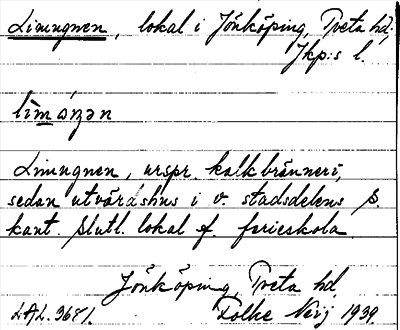 Limugnen, lokal i Jönköping, Tveta hd.
Jkp:s l.
Limugnen, urspr. kalkbränneri,
sedan utvärdshus i v. stadsdelens s.
kant. Slutl. lokal f. ferieskola.
Jönköping, Tveta hd,
LAL. 3671. Folke 1939